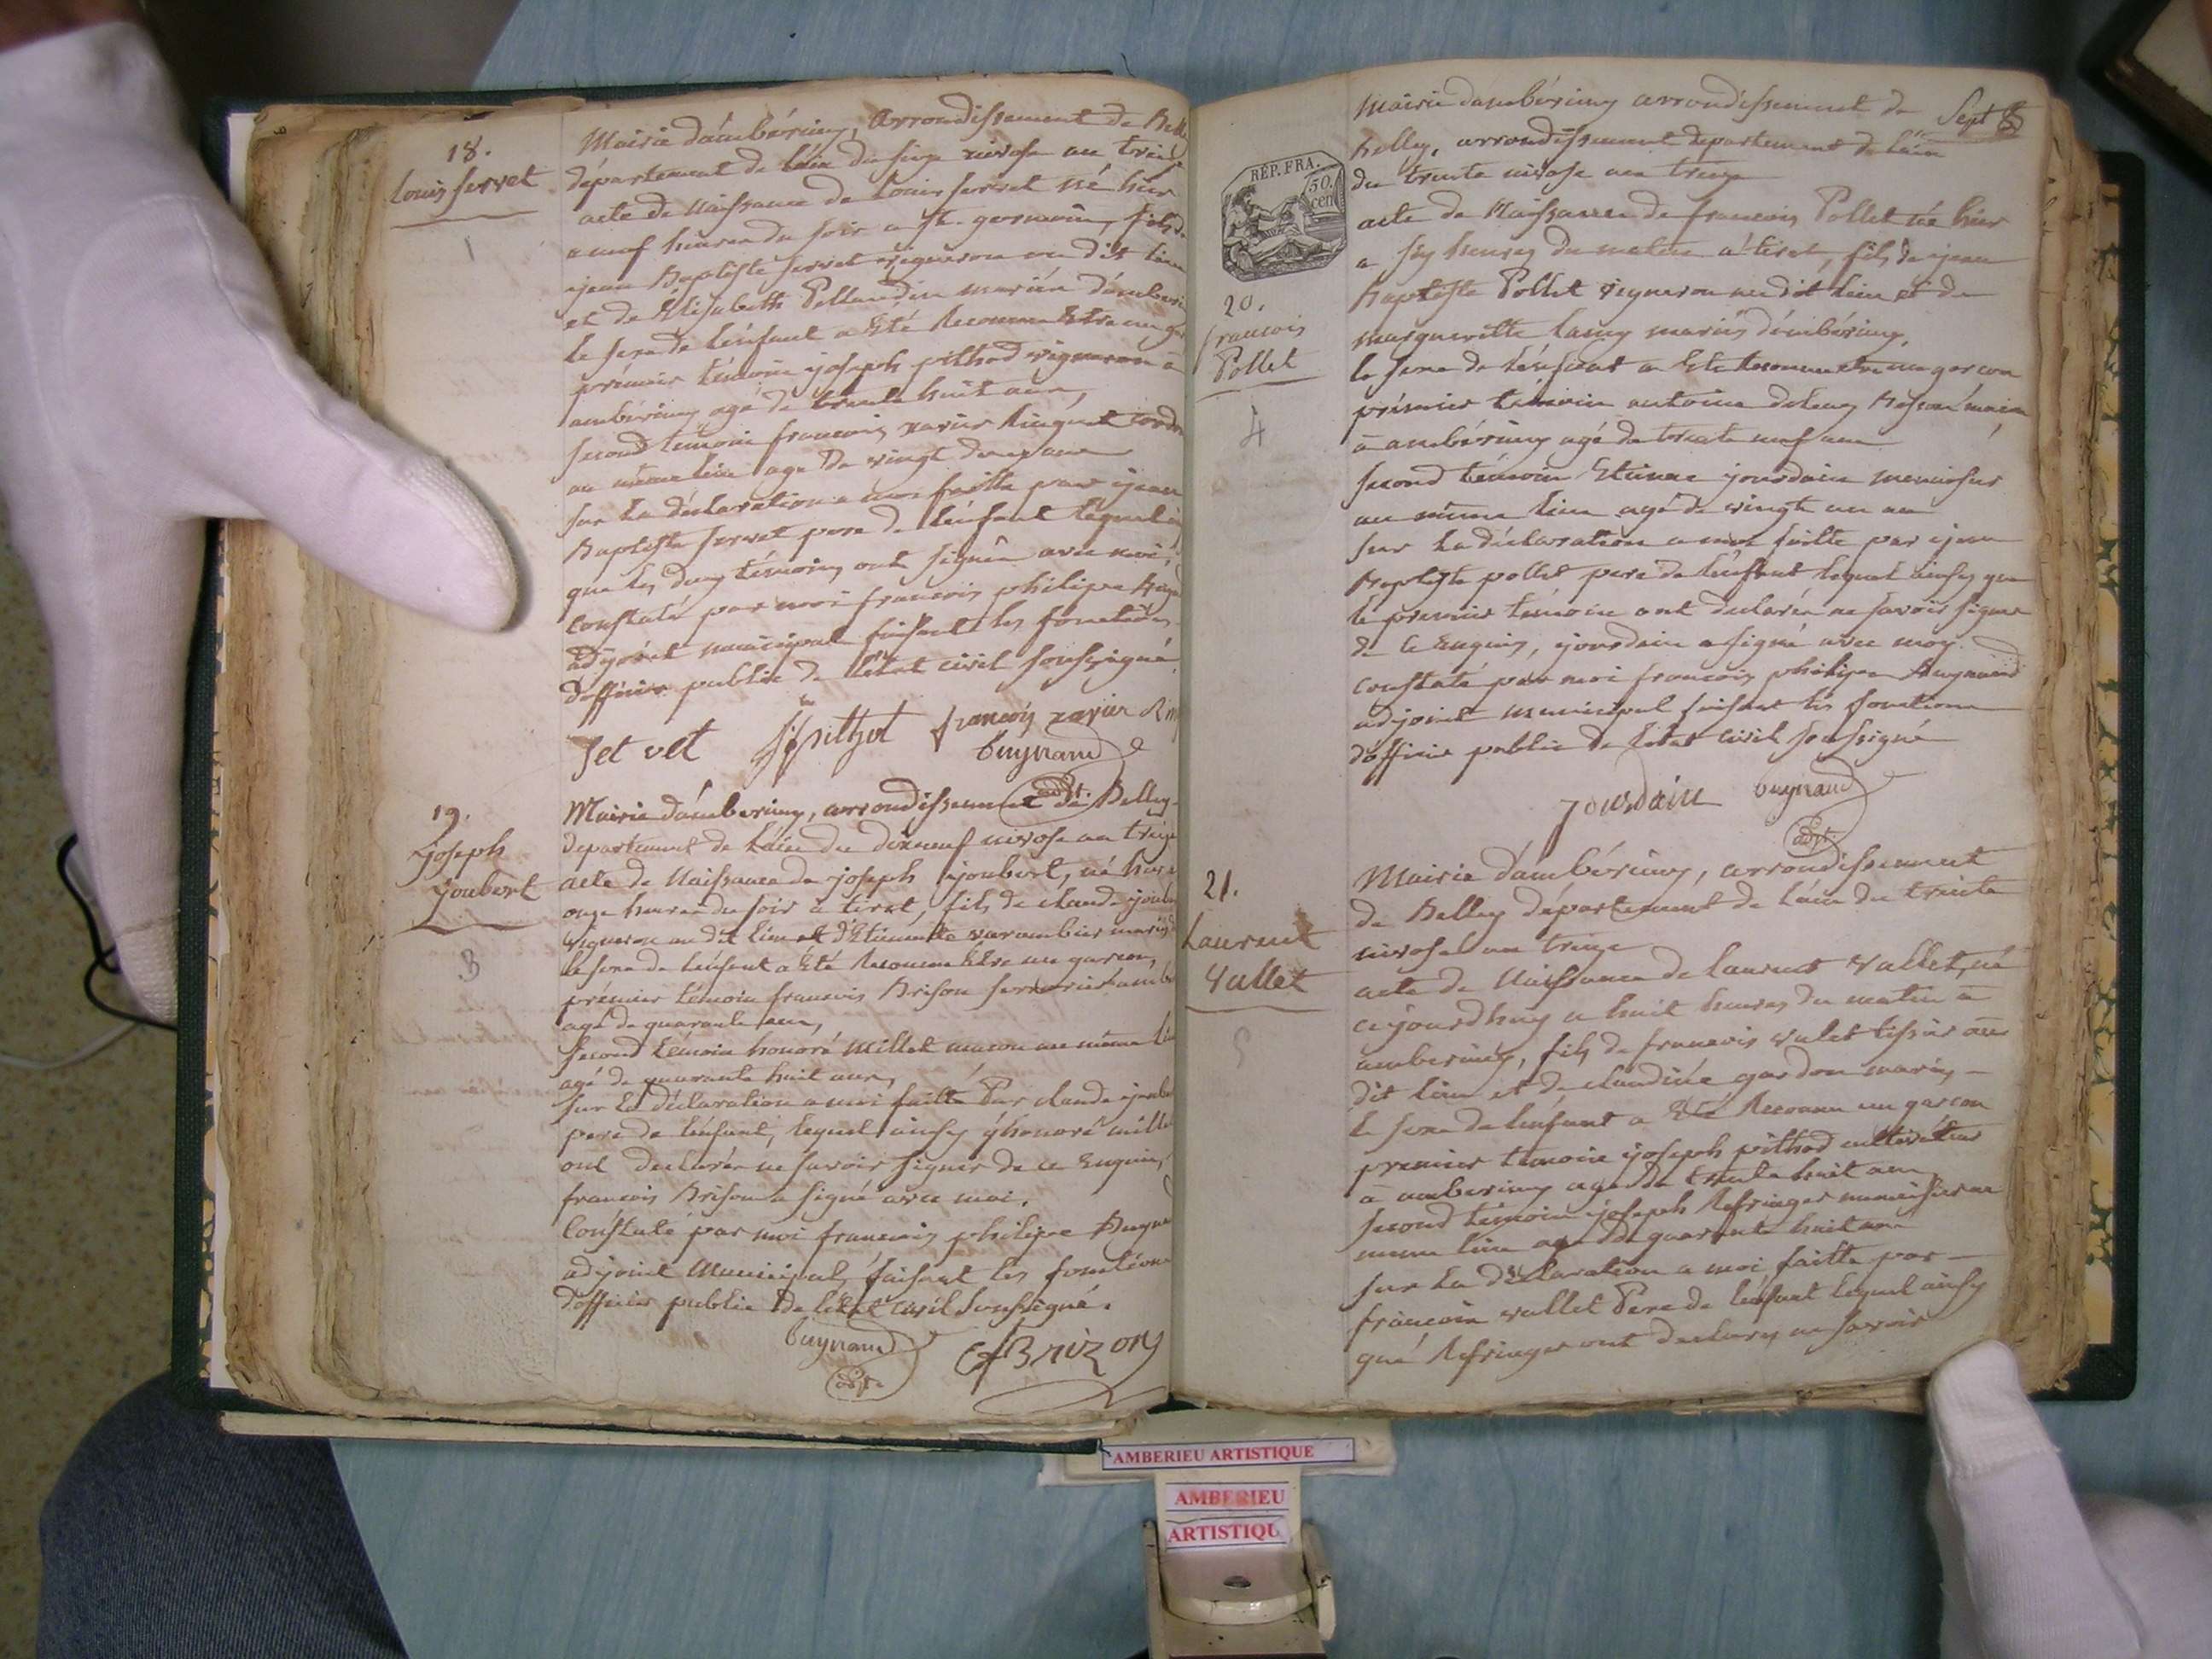 18.
Louis servet
Mairie d'ambérieux, arrondissement de Bell
département de l'ain du seize nivose an treize
acte de Naissance de Louis servet né hier
a neuf heures du soir a st. germain, fils de
jean Baptiste servet vigneron au dit lieu
et de Elisabeth Pellaudin mariés d'amberi
le sexe de l'enfant a été Reconnu Etre un gar
prémier témoin joseph pithod vigneron à
ambérieux agé de trente huit ans,
second témoin francois xavier
au même lieu age de vingt deux ans
sur la déclaration a moi faitte par jean
Baptiste servet pere de l'enfant lequel
que les deux témoins ont signée avec moi,
Constaté par moi francois philipe
adjoint municipal faisant les fonctions
d'officier public de l'état civil soussigné.
Set vet
francois xavier Rin
buynand
adjt.
19.
joseph
joubert
Mairie d'amberieux, arrondissement de Belley
département de l'ain du dixneuf nivose an treize
acte de Naissance de joseph joubert, né hier
onze heures du soir a tiret, fils de claude joub
vigneron au dit lieu et d'Etiennette varambier mariés
le sexe de l'enfant a Eté Reconnu Etre un garcon,
prémier témoin francois Brison serrurier
agé de quarante ans,
second témoin honoré Millet macon au même lieu
agé de quarante huit ans,
sur la déclaration a moi faitte Par claude joube
pere de l'enfant, lequel ainsy q'honoré mille
ont declarée ne savoir signer de ce Enquis,
francois Brison a signé avec moi.
Constaté par moi francois philipe Buyna
adjoint Municipal, faisant les fonctions
d'officier public de l'état civil soussigné.
buynand
adjt.
Brizon
Sept
RÉP. FRA.
50.
cen
Mairie d'ambérieux arrondissement de
Belley, arrondissement departement de l'ain
du trente nivose an treize
acte de Naissance de francois Pollet né hier
a six heures du matin a tiret, fils de jean
Baptiste Pollet vigneron au dit lieu et de
marguerite lamy mariés d'ambérieux.
20.
francois
Pollet
4
le sexe de l'enfant a Eté Reconnu Etre un garcon
prémier témoin antoine
à ambérieux agé de trente neuf ans
second témoin Etienne jourdain menuisier
au même lieu agé de vingt un an
sur la déclaration a moi faitte par jean
Baptiste pollet pere de l'enfant lequel ainsy que
le premier témoin ont declarée ne savoir signer
de ce Enquis, jourdain a signé avec moy.
Constaté par moi francois philipe Buynand
adjoint municipal faisant les fonctions
d'officier public de l'état civil soussigné
jourdain
buynand
adjt.
21.
Laurent
Vallet
Mairie d'ambérieux, arrondissement
de Belley département de l'ain du trente
nivose an treize
acte de Naissance de laurent vallet, né
cejourdhuy a huit heures du matin à
amberieux, fils de francois valet tissier au
dit lieu et de claudine gardon mariés
le sexe de l'enfant a Eté Reconnu un garcon
premier témoin joseph pithod cultivateur
à amberieux age de trente huit ans
second témoin joseph Refringer menuisier au
meme lieu age de quarante huit ans
sur la déclaration a moi faitte par
francois vallet Pere de l'enfant lequel ainsy
que Refringer ont declarez ne savoir
AMBERIEU ARTISTIQUE
AMBERIEU
ARTISTIQU